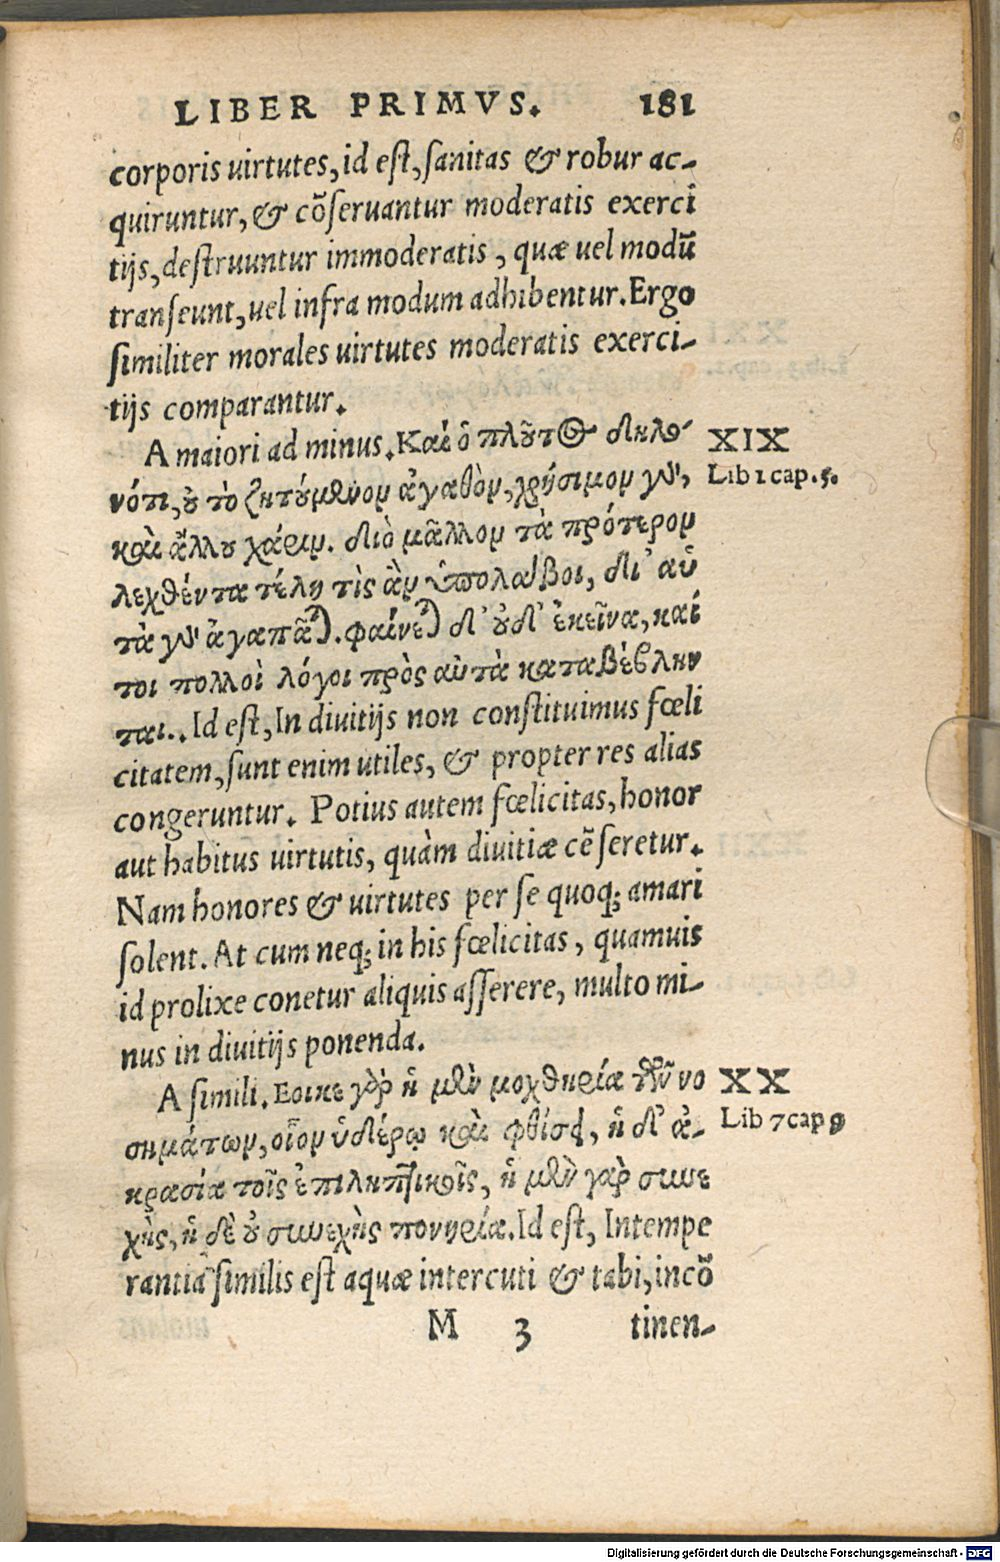 LIBER PRIMVS. 181
corporis uirtutes, id est, sanitas & robur ac-
quiruntur, & cõseruantur moderatis exerci
tijs, destruuntur immoderatis, quæ uel modũ
transeunt, uel infra modum adhibentur. Ergo
similiter morales uirtutes moderatis exerci-
tijs comparantur.
A maiori ad minus. Καὶ ὁ πλοῦτος δῆλο- XIX
νότι, οὐ τὸ ζητούμενον ἀγαθὸν, χρήσιμον γὰρ, Lib 1 cap. 5.
καὶ ἄλλου χάριν. διὸ μᾶλλον τὰ πρότερον
λεχθέντα τέλη τὶς ἂν ὑπολάβοι, δι' αὑ
τὰ γὰρ ἀγαπᾶται. φαίνεται δ' οὐδ' ἐκεῖνα, καί
τοι πολλοὶ λόγοι πρὸς αὐτὰ καταβέβλην
ται. Id est, In diuitijs non constituimus fœli
citatem, sunt enim utiles, & propter res alias
congeruntur. Potius autem fœlicitas, honor
aut habitus uirtutis, quàm diuitiæ cẽseretur.
Nam honores & uirtutes per se quoq; amari
solent. At cum neq; in his fœlicitas, quamuis
id prolixe conetur aliquis asserere, multo mi-
nus in diuitijs ponenda.
A simili. Εοικε γὰρ ἡ μὲν μοχθηρία τῶν νο XX
σημάτων, οἷον ὑδέρῳ καὶ φθίσει, ἡ δ' ἀ- Lib 7 cap 8
κρασία τοῖς ἐπιληπτικοῖς, ἡ μὲν γὰρ συνε
χὴς, ἡ δὲ οὐ συνεχὴς πονηρία. Id est, Intempe
rantia similis est aquæ intercuti & tabi, incõ
M 3 tinen-
Digitalisierung gefördert durch die Deutsche Forschungsgemeinschaft - DFG